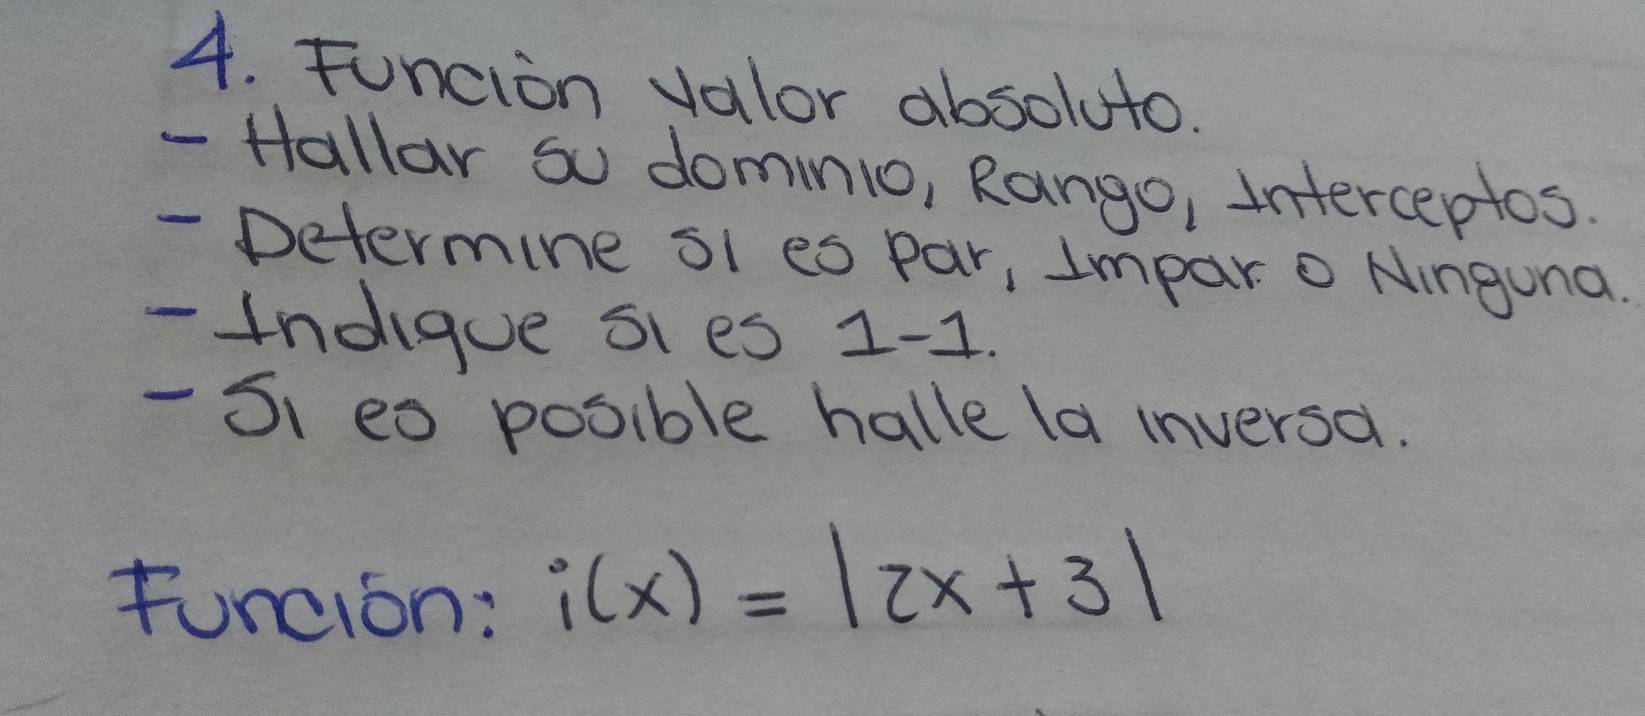 4. Función valor absoluto.
- Hallar su dominio, Rango, Interceptos.
- Determine si es par, Impar o Ninguna.
- Indique si es 1-1.
- Si es posible halle la inversa.
Función: i(x) = |2x+3|